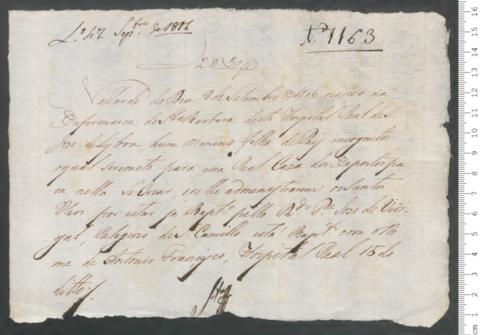 L.º 47 Sepbr.º de 1816 N.º 1163
Na tarde do dia de Setembro de 1816 nasceo na
Enfermaria de S.ta Barbara deste Hospital Real de S.
Jose de Lxboa hum menino filho de Pay incognito
oqual seremete para una Real Caza dos Expostos pa
ra nella se Criar, eselhe admenistrarem os Santos
Oleos por estar ja Bapt.º pello R.do P.e Jose de
Religioso de S. Camillo está Bapt.º com o No
me de Antonio Francisco, Hospital Real 15 do
ditto